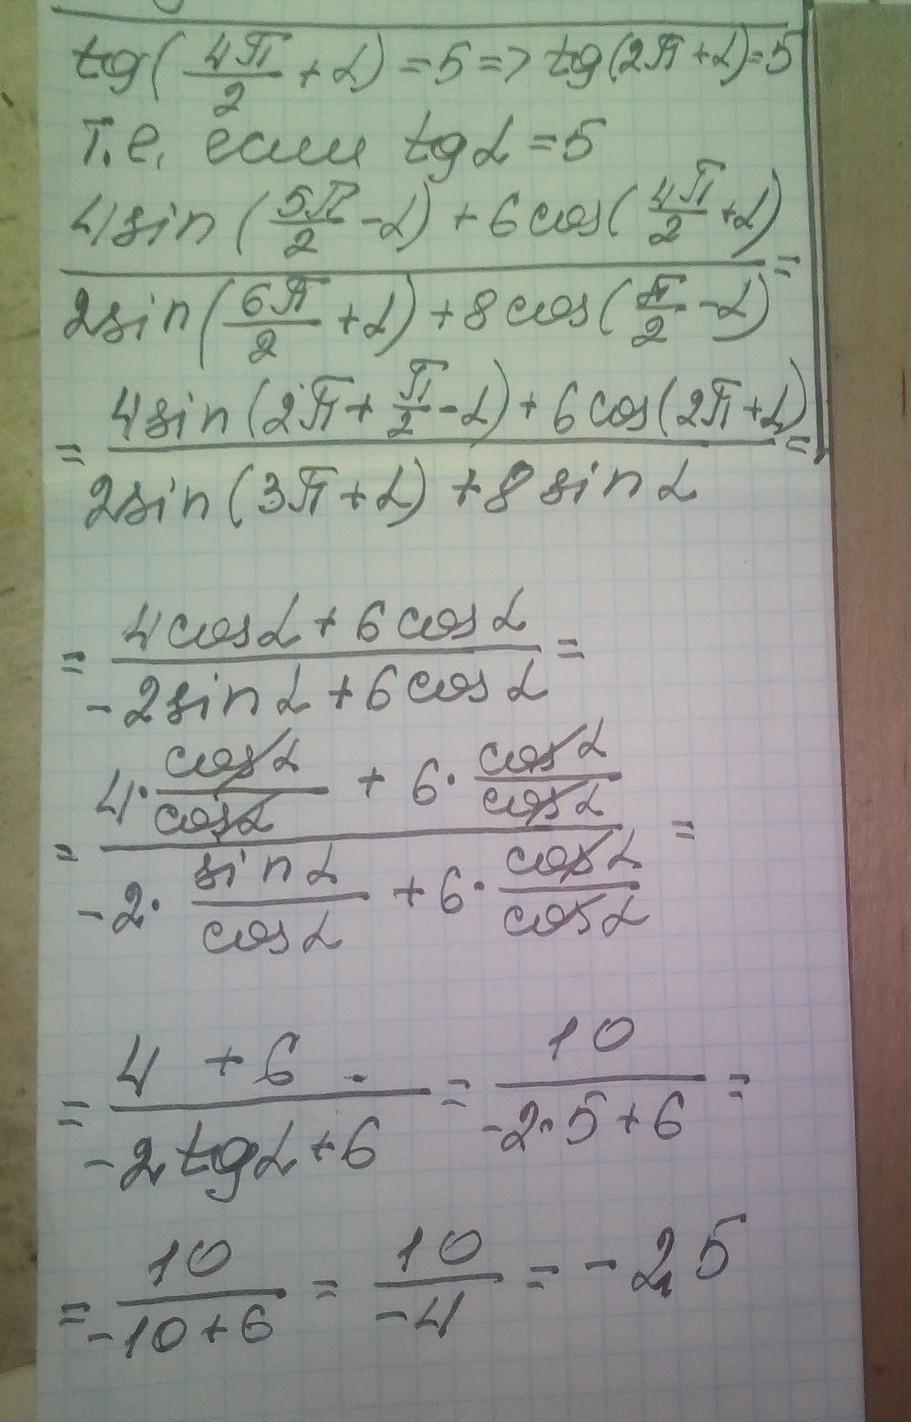 tg(4π/2 + α) = 5 => tg(2π + α) = 5
т.е. если tgα = 5
(4sin(5π/2 - α) + 6cos(4π/2 + α)) / (2sin(6π/2 + α) + 8cos(π/2 - α)) =
= (4sin(2π + π/2 - α) + 6cos(2π + α)) / (2sin(3π + α) + 8sinα) =
= (4cosα + 6cosα) / (-2sinα + 6cosα) =
= (4·cosα/cosα + 6·cosα/cosα) / (-2·sinα/cosα + 6·cosα/cosα) =
= (4 + 6) / (-2tgα + 6) = 10 / (-2·5 + 6) =
= 10 / (-10 + 6) = 10 / -4 = -2,5